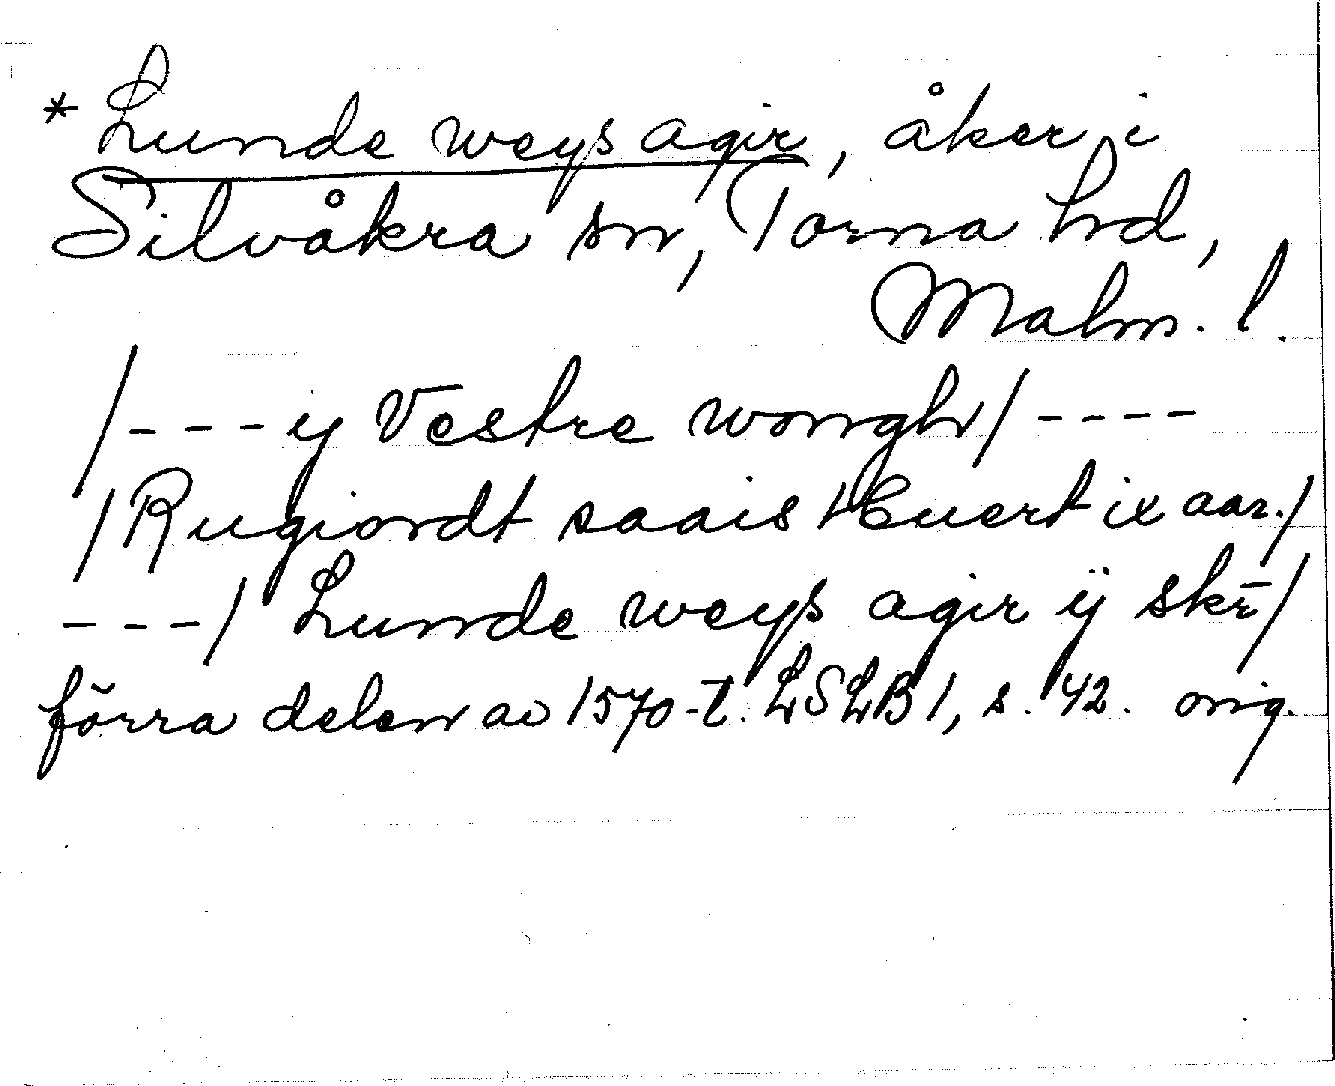 * Lunde weys agir, åker i
Silvåkra sn, Torna hd,
Malm. l.
/---ij Vestre wongh/----
/Rugiordt saais huert ix aar./
---/ Lunde weys agir ij skr̄/
förra delen av 1570-t. LSLB 1, s. 42. orig.